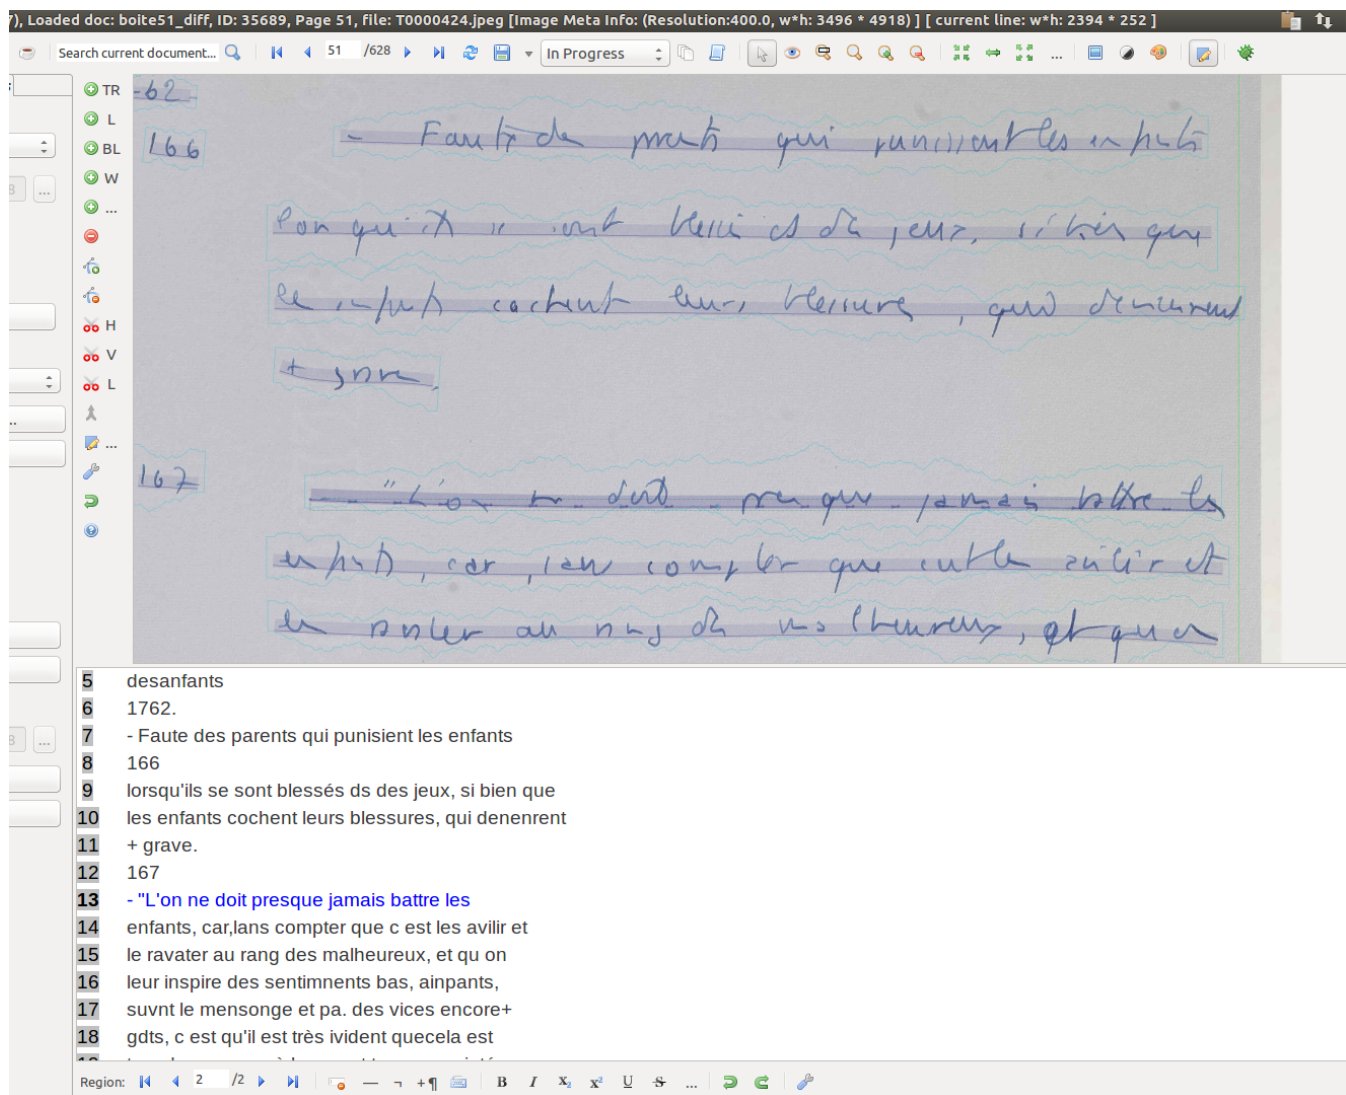 7), Loaded doc: boite51_diff, ID: 35689, Page 51, file: T0000424.jpeg [Image Meta Info: (Resolution:400.0, w*h: 3496 * 4918) ] [ current line: w*h: 2394 * 252 ]
Search current document... 51 /628 In Progress ...
TR
L
BL
W
...
H
V
L
...
-62-
166 - Faute de parents qui punissent les enfants
lorsqu'ils se sont blessés ds des jeux, si bien que
les enfants cachent leurs blessures, qui demeurent
+ grave.
167 - "L'on ne doit presque jamais battre les
enfants, car, sans compter que c'est les avilir et
les ravaler au rang des malheureux, et qu'on
5 desanfants
6 1762.
7 - Faute des parents qui punisient les enfants
8 166
9 lorsqu'ils se sont blessés ds des jeux, si bien que
10 les enfants cochent leurs blessures, qui denenrent
11 + grave.
12 167
13 - "L'on ne doit presque jamais battre les
14 enfants, car,lans compter que c est les avilir et
15 le ravater au rang des malheureux, et qu on
16 leur inspire des sentimnents bas, ainpants,
17 suvnt le mensonge et pa. des vices encore+
18 gdts, c est qu'il est très ivident quecela est
Region: 2 /2 — ¬ +¶ B I X₂ X² U S ...